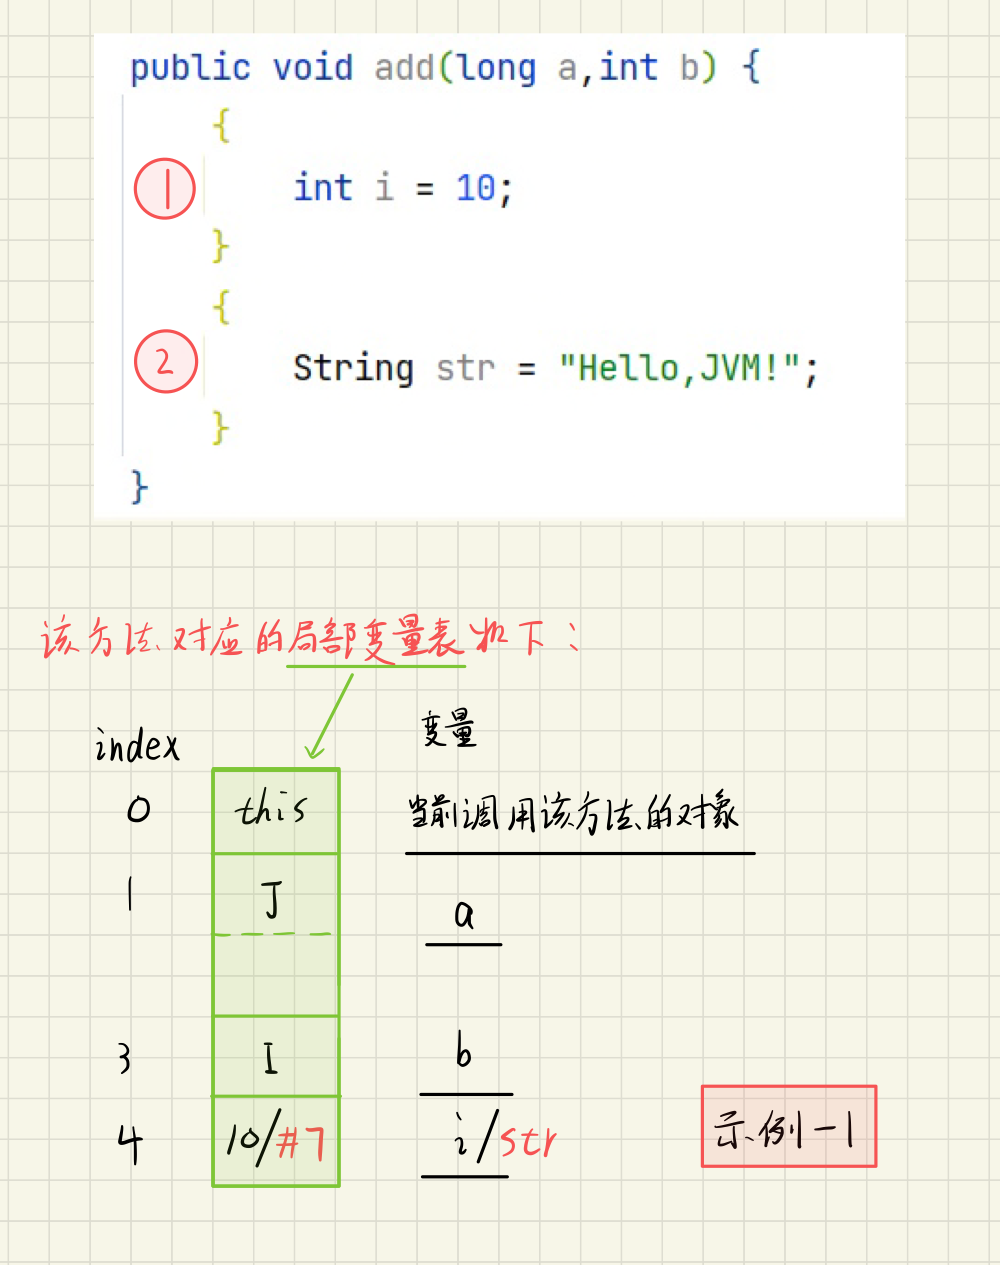 public void add(long a,int b) {
{
① int i = 10;
}
{
② String str = "Hello,JVM!";
}
}
该方法对应的局部变量表如下：
index 变量
0 this 当前调用该方法的对象
1 J a
3 I b
4 10/#7 i/str
示例-1